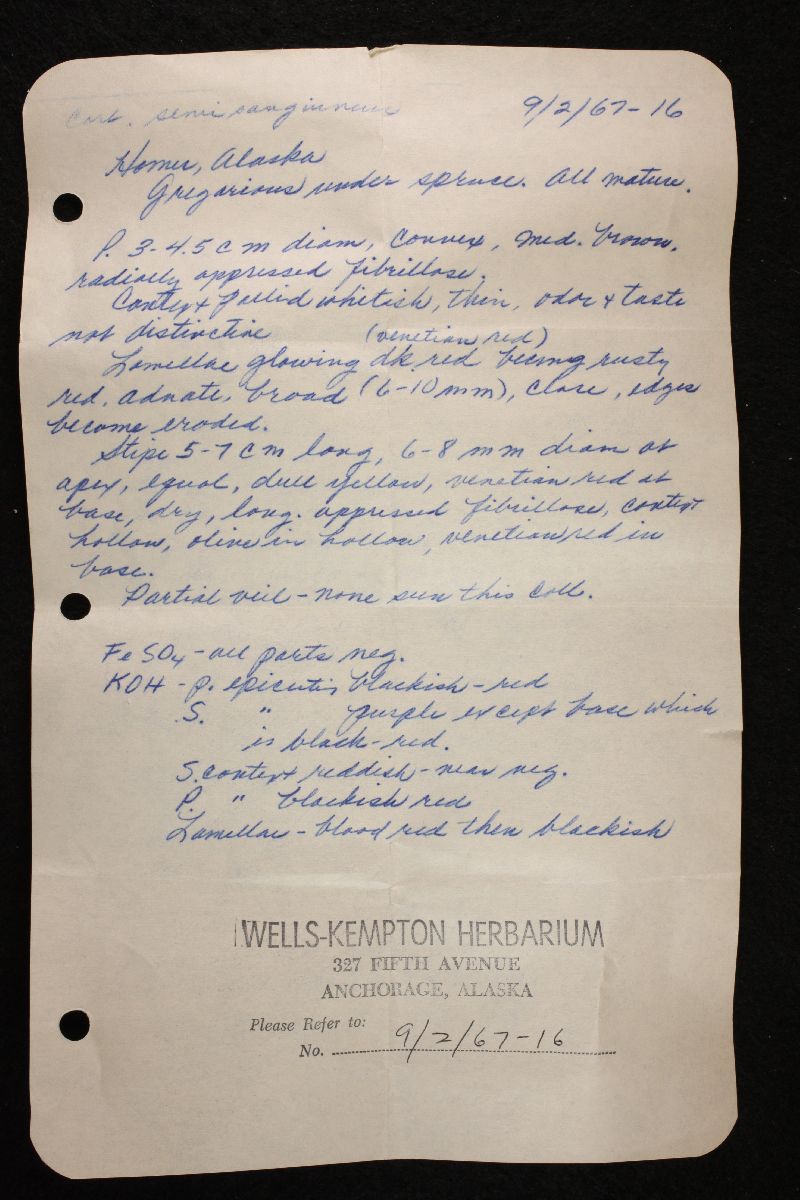 Cort. semisanguineus
9/2/67-16
Homer, Alaska
Gregarious under spruce. All mature.
P. 3-4.5 cm diam, convex, med. brown,
radially appressed fibrillose.
Context pallid whitish, thin, odor & taste
not distinctive (venetian red)
Lamellae glowing dk. red becmg rusty
red, adnate, broad (6-10 mm), close, edges
become eroded.
Stipe 5-7 cm long, 6-8 mm diam at
apex, equal, dull yellow, venetian red at
base, dry, long. appressed fibrillose, context
hollow, olive in hollow, venetian red in
base.
Partial veil - none seen this coll.
FeSO4 - all parts neg.
KOH - P. epicutis blackish-red
S. " purple except base which
is black-red.
S. context reddish - near neg.
P. " blackish red
Lamellae - blood red then blackish
WELLS-KEMPTON HERBARIUM
327 FIFTH AVENUE
ANCHORAGE, ALASKA
Please Refer to:
No. 9/2/67-16